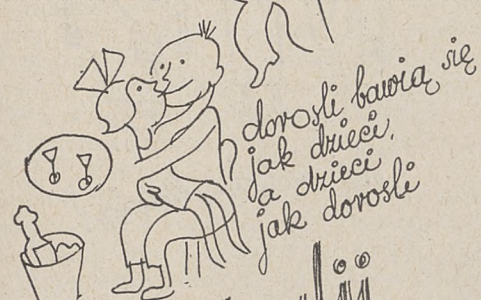 dorośli bawią się
jak dzieci,
a dzieci
jak dorośli